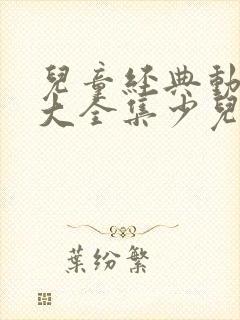 兒童經典動
大全集少兒
葉紛繁